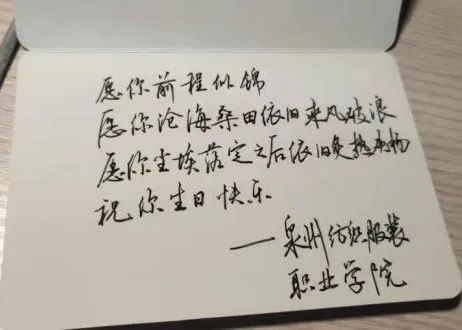 愿你前程似锦
愿你沧海桑田依旧乘风破浪
愿你尘埃落定之后依旧炙热张扬
祝你生日快乐
——泉州纺织服装
职业学院